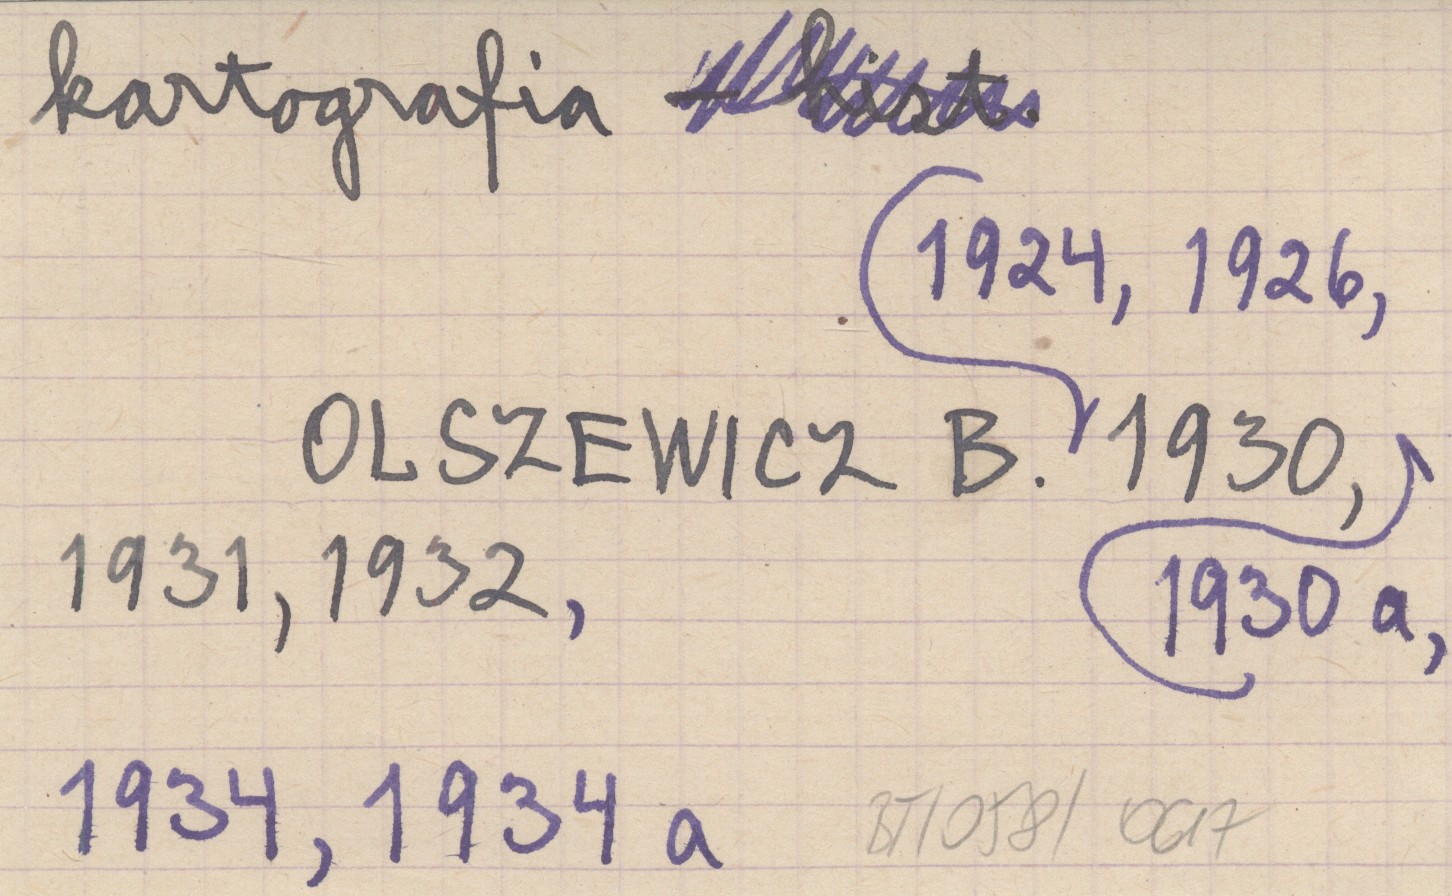 kartografia - hist.
1924, 1926,
OLSZEWICZ B. 1930,
1931, 1932,
1930 a,
1934, 1934 a
BT/058/ 0617